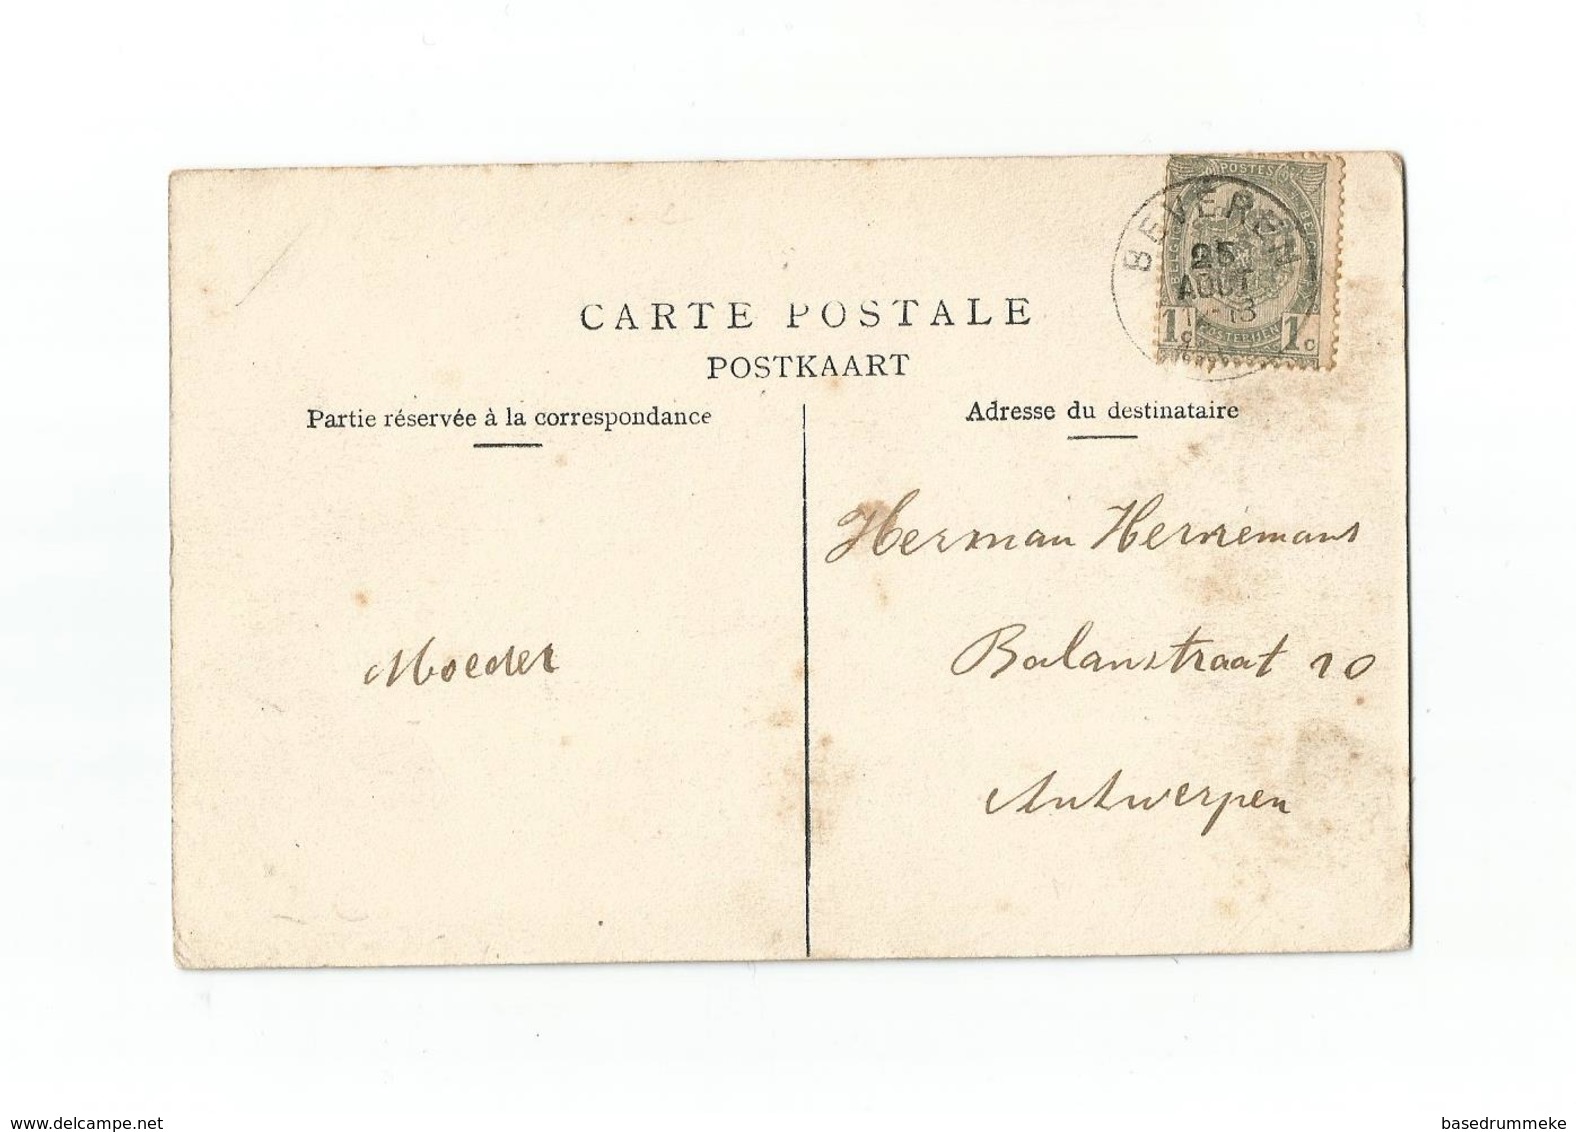 CARTE POSTALE
POSTKAART
Partie réservée à la correspondance
Adresse du destinataire
POSTES
BEVEREN
25
AOUT
POSTERIJEN
1c 1c
Herman Herremans
Balanstraat 10
Antwerpen
Moeder
www.delcampe.net
basedrummeke